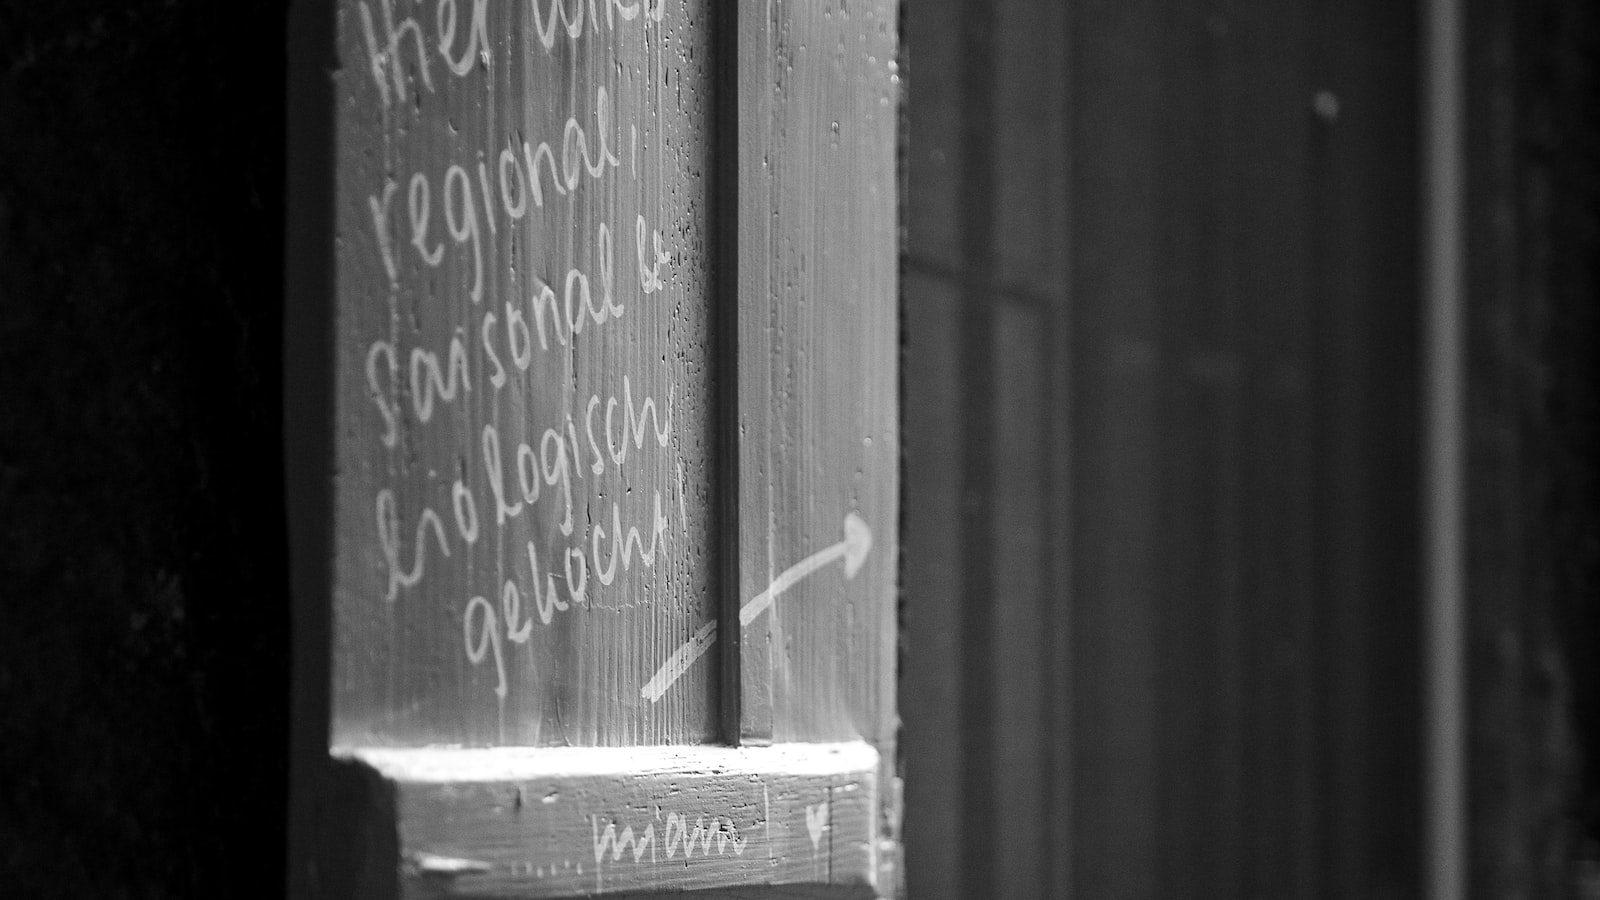 Hier wird
regional,
saisonal &
biologisch
gekocht!
..... miam! ♥